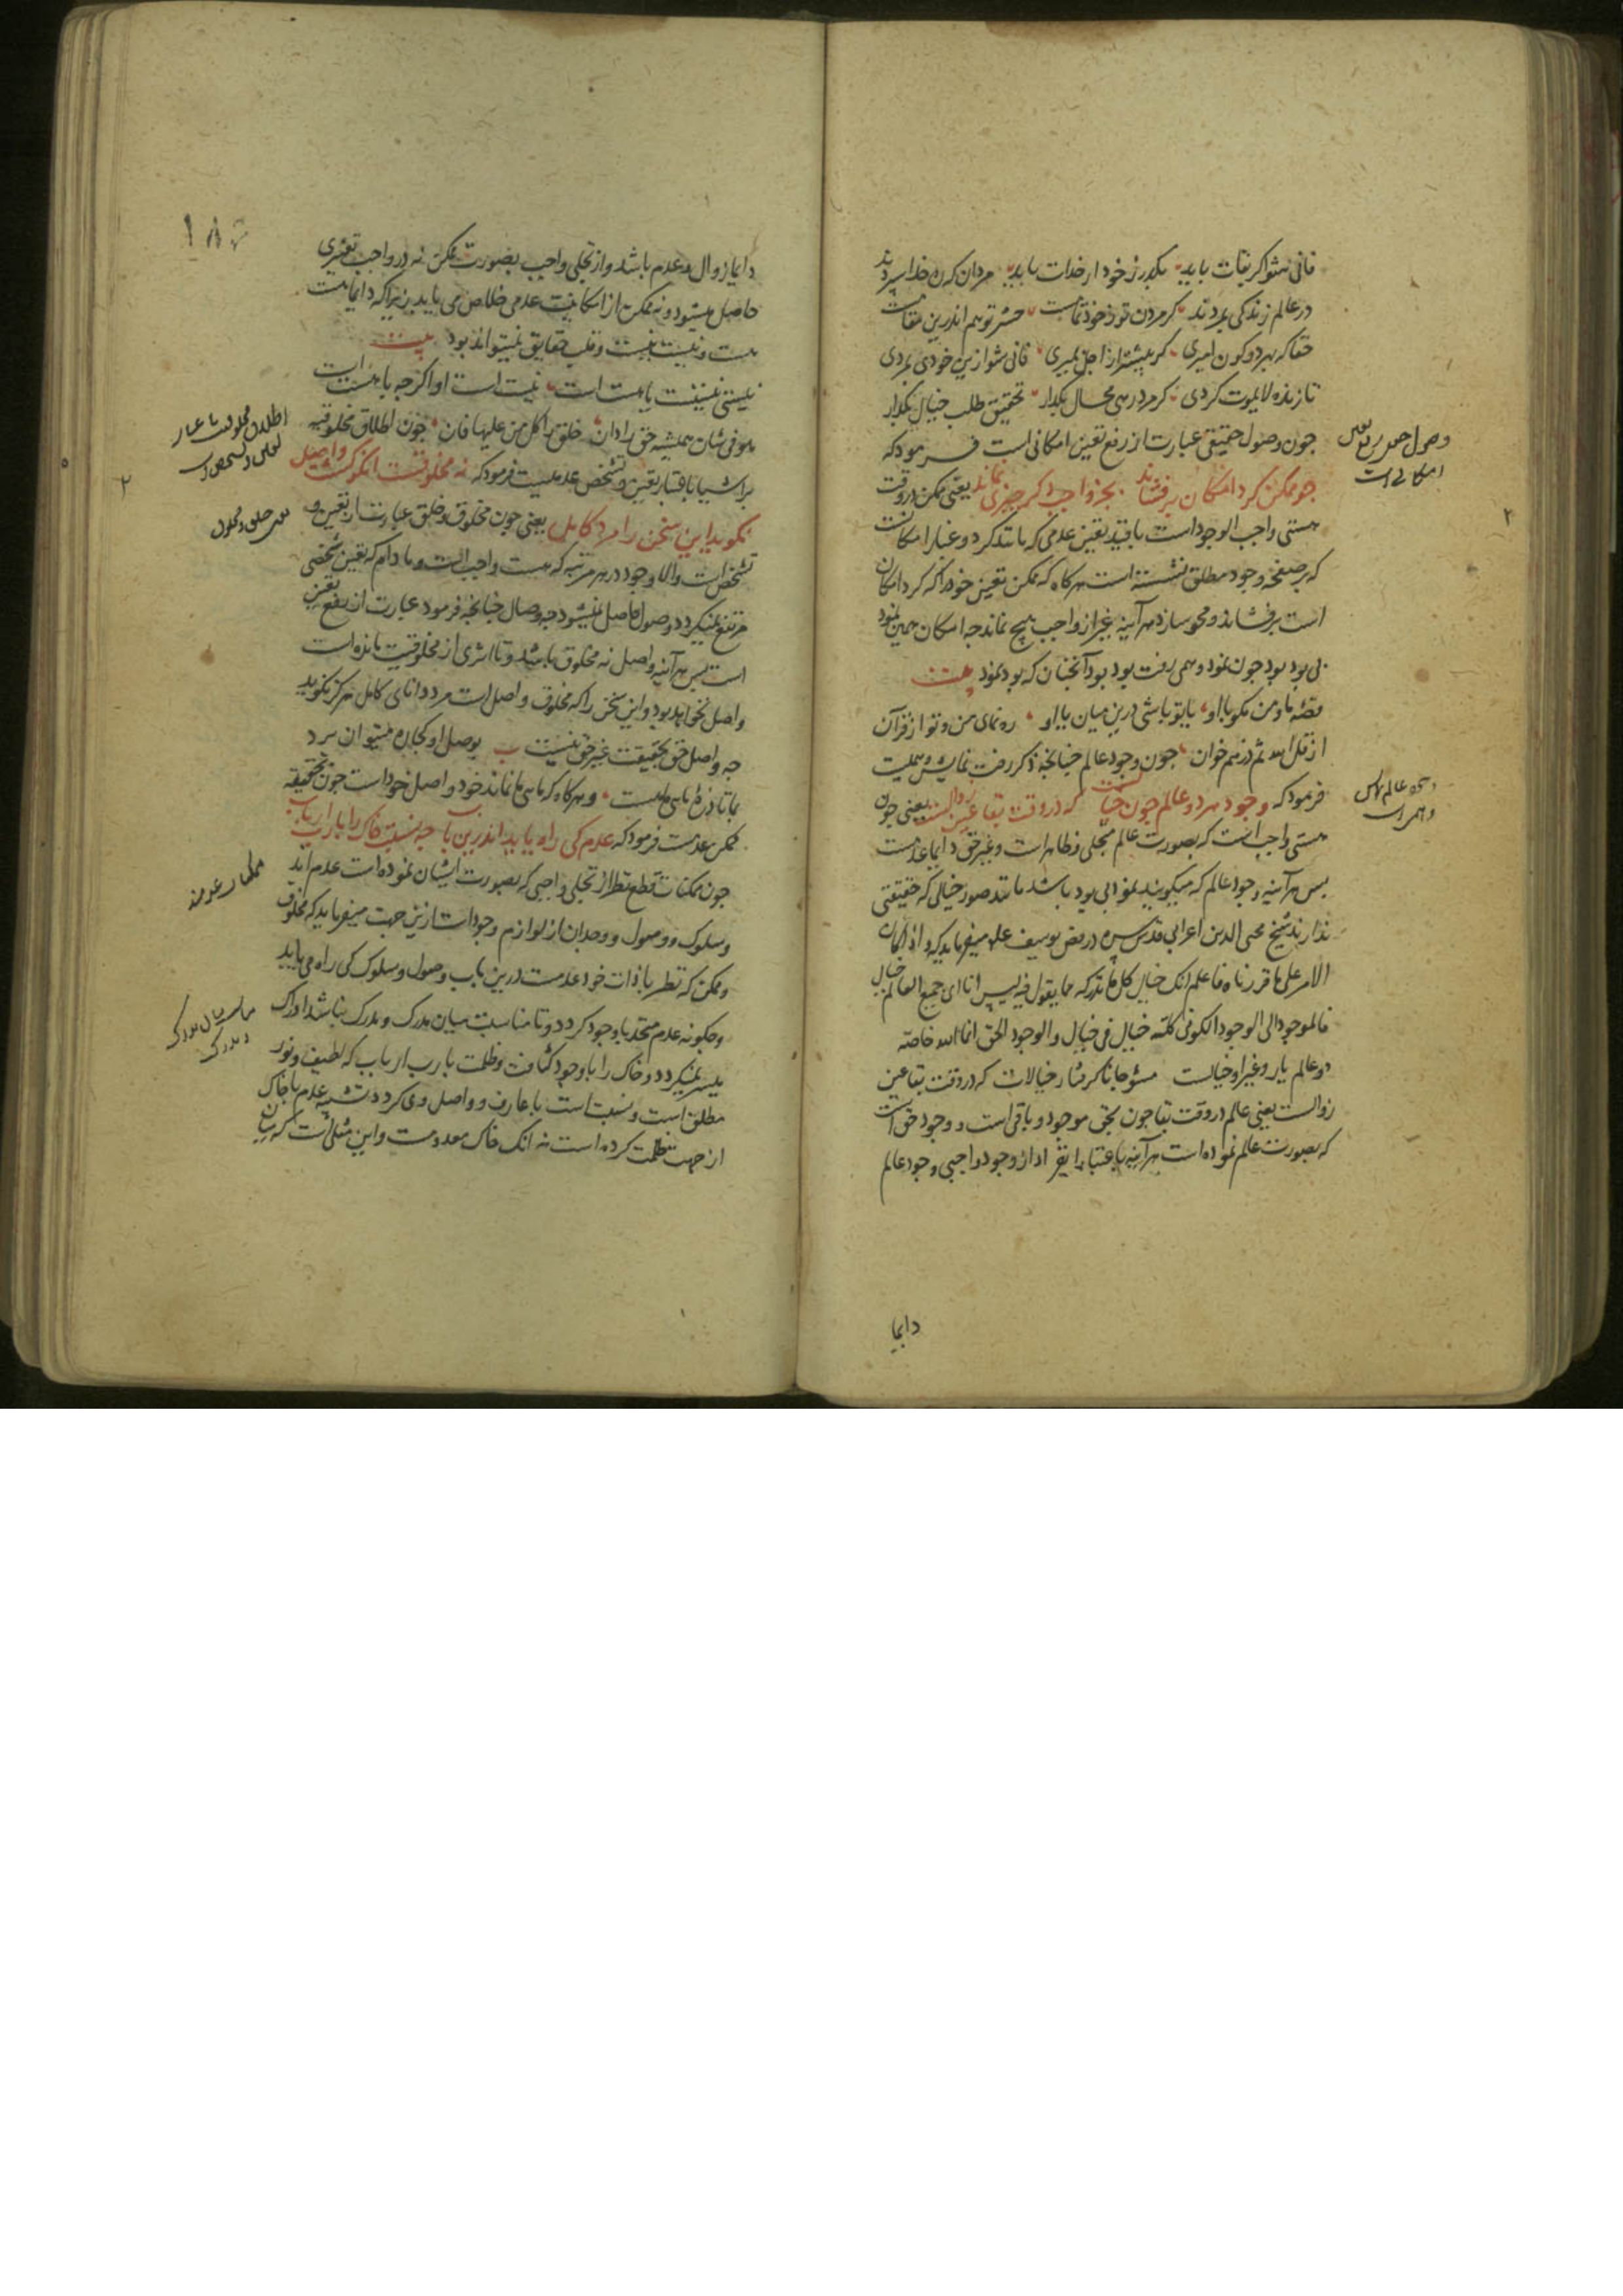 فانی شو اکر بقات باید بکذر ز خود ار خدات باید مردان که ره خدا سپردند
در عالم زندکی بمردند کر مردن تو ز خود تمامست حشر تو هم اندرین مقامست
حقا که بهر دو کون امیری کر پیشتر از اجل بمیری فانی شو ازین خودی بمردی
تا زنده لایموت کردی کر مرد رهی محال بکذار تحقیق طلب خیال بکذار
جون وصول حقیقی عبارت از رفع تعین امکانی است فرمود که
جو ممکن کرد امکان برفشاند بجز واجب دکر چیزی نماند یعنی ممکن در وقت
هستی واجب الوجود است با قید تعین عدمی که مانند کرد و غبار امکانیت
که بر صفحه وجود مطلق نشسته است هرکاه که ممکن تعین خود را که کرد امکان
است برفشاند و محو سازد هر آینه غیر از واجب هیچ نماند جه امکان همین نمود
بی بود بود جون نمود وهمی رفت بود بود آنجنان که بود نمود بیت
قصه ما و من مکو با او یا تو باشی درین میان یا او ره نمای من و تو از قرآن
از قل الله ثم ذرهم خوان جون وجود عالم جنانجه ذکر رفت نمایش وهمیست
فرمود که وجود هر دو عالم جون خیالست که در وقت بقا عین زوالست یعنی جون
هستی واجب است که بصورت عالم متجلی و ظاهر است و غیر حق دایما عدمست
پس هر آینه وجود عالم که میکویند نمود بی بود باشد مانند صور خیالی که حقیقتی
ندارند شیخ محی الدین اعرابی قدس سره در فص یوسف علم میفرماید که و اذا کان
الامر علی ما قررناه فاعلم انک خیال کل ما تدرکه مما یقول فیه لیس انا ای جمیع العالم خیال
فالموجود الی الوجود الکونی کلته خیال فی خیال والوجود الحق انما الله خاصة
دو عالم یار و غیر او خیالست مشو جانا کرفتار خیالات که در وقت بقا عین
زوالست یعنی عالم در وقت بقا جون بحق موجود و باقی است و وجود حق است
که بصورت عالم نموده است هر آینه باعتبار انفراد از وجود واجبی وجود عالم
دایما
وصول
امکانی است
عالم
۲
دایما زوال و عدم باشد و از تجلی واجب بصورت ممکن نه در واجب تغیری
حاصل میشود و نه ممکن از امکانیت عدمی خلاص می یابد زیرا که دایما هست
هست و نیست نیست و قلب حقایق نمیتواند بود بیت
نیستی نیست یا هست است نیست است او اکرجه با هست است
هو فی شان همیشه حق را دان خلق را کل من علیها فان جون اطلاق مخلوقیه
بر اشیا باعتبار تعین و تشخص عدمیست فرمود که نه مخلوقست انکو کشت واصل
نکوید این سخن را مرد کامل یعنی جون مخلوق و خلق عبارت از تعین و
تشخص است و الا وجود در هر مرتبه که هست واجب است و مادام که تعین شخصی
مرتفع نمیکردد وصول حاصل نمیشود جه وصال جنانجه فرمود عبارت از رفع تعین
است پس هر آینه واصل نه مخلوق باشد و تا اثری از مخلوقیت مانده است
واصل نخواهد بود و این سخن را که مخلوق واصل است مرد دانای کامل هرکز نکوید
جه واصل حق بحقیقت غیر حق نیست بوصل او کجا ره میتوان برد
بما تا ذره با سی ماهست و هرکاه که ما سی ما نماند خود واصل خود است جون بحقیقه
ممکن عدمست فرمود که عدم کی راه یابد اندرین باب جه نسبت خاک را با رب ارباب
جون ممکنات قطع نظر از تجلی واجبی که بصورت ایشان نموده است عدم اند
و سلوک و وصول و وجدان از لوازم وجود است ازین جهت میفرماید که مخلوق
و ممکن که نظر با ذات خود عدمست درین باب وصول و سلوک کی راه می یابد
و جکونه عدم متحد با وجود کردد و تا مناسبت میان مدرک و مدرک نباشد ادراک
میسر نمیکردد و خاک را با وجود کثافت و ظلمت با رب ارباب که لطیف و نور
مطلق است و نسبت است با عارف و واصل وی کردد تشبیه عدم با خاک
از جهت ظلمت کرده است نه انک خاک معدومست و این مثلی است که میان
۲